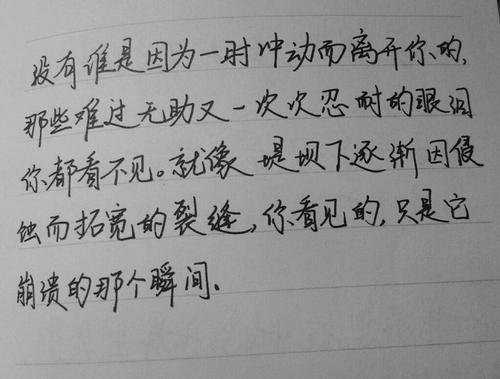 没有谁是因为一时冲动而离开你的,
那些难过无助又一次次忍耐的眼泪
你都看不见。就像 堤坝下逐渐因侵
蚀而拓宽的裂缝,你看见的,只是它
崩溃的那个瞬间.